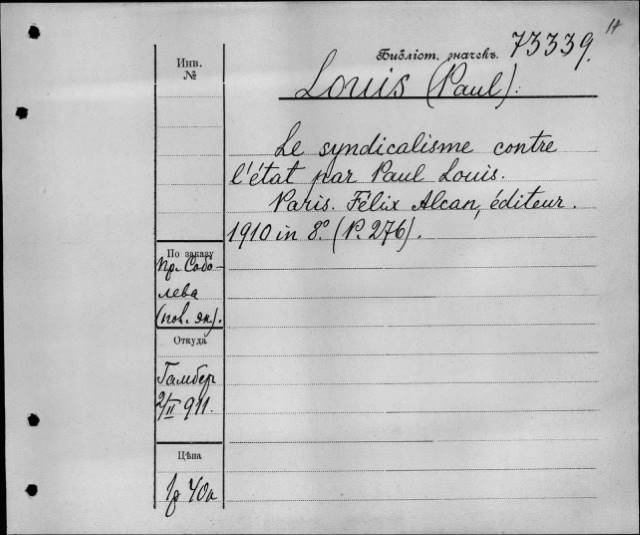 Инв.
№
Библіот. значекъ. 73339.
Louis (Paul).
Le syndicalisme contre
l'état par Paul Louis.
Paris. Félix Alcan, éditeur.
1910 in 8.º (P. 276).
По заказу
пр. Собо-
лева
(нов. эк).
Откуда
Гамбер
2/II 911.
Цѣна
1р 40к